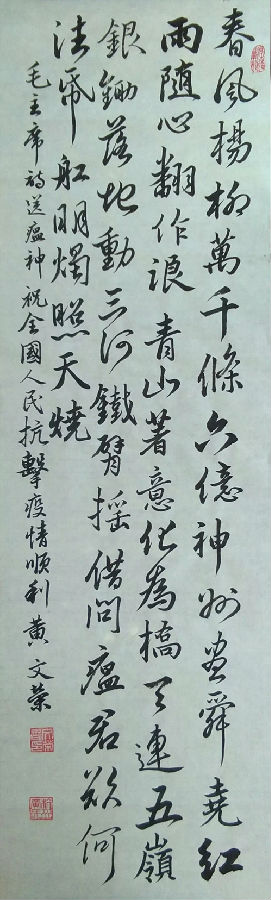 春風楊柳萬千條六億神州盡舜堯紅
雨隨心翻作浪青山著意化為橋天連五嶺
銀鋤落地動三河鐵臂搖借問瘟君欲何
往帋舡明燭照天燒
毛主席詩送瘟神祝全國人民抗擊疫情順利黃文榮